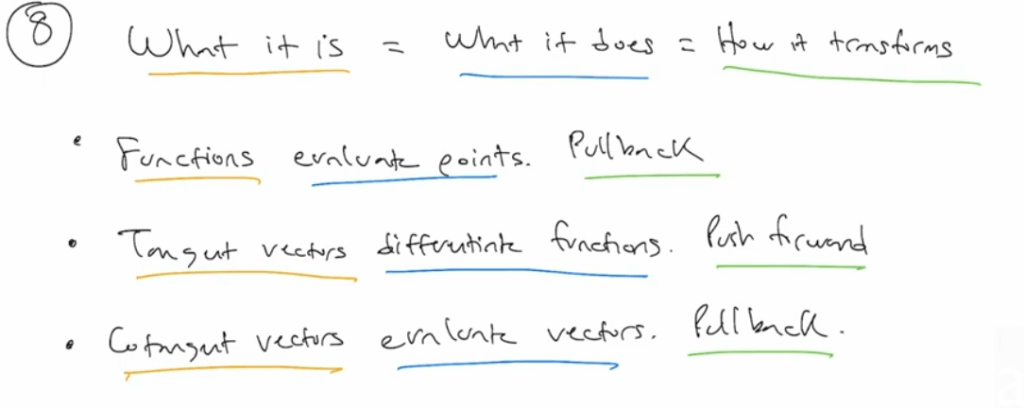 8 What it is = What it does = How it transforms
• Functions evaluate points. Pullback
• Tangent vectors differentiate functions. Push forward
• Cotangent vectors evaluate vectors. Pullback.